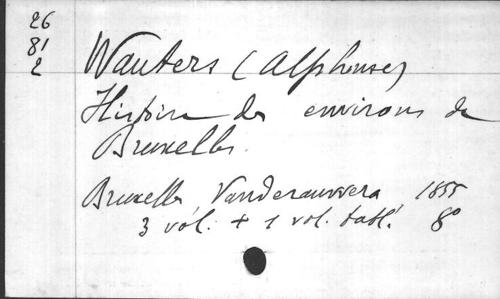 26
81
2
Wauters (Alphonse)
Histoire des environs de
Bruxelles.
Bruxelles, Vanderauwera 1855
3 vol. + 1 vol. tabl. 8°